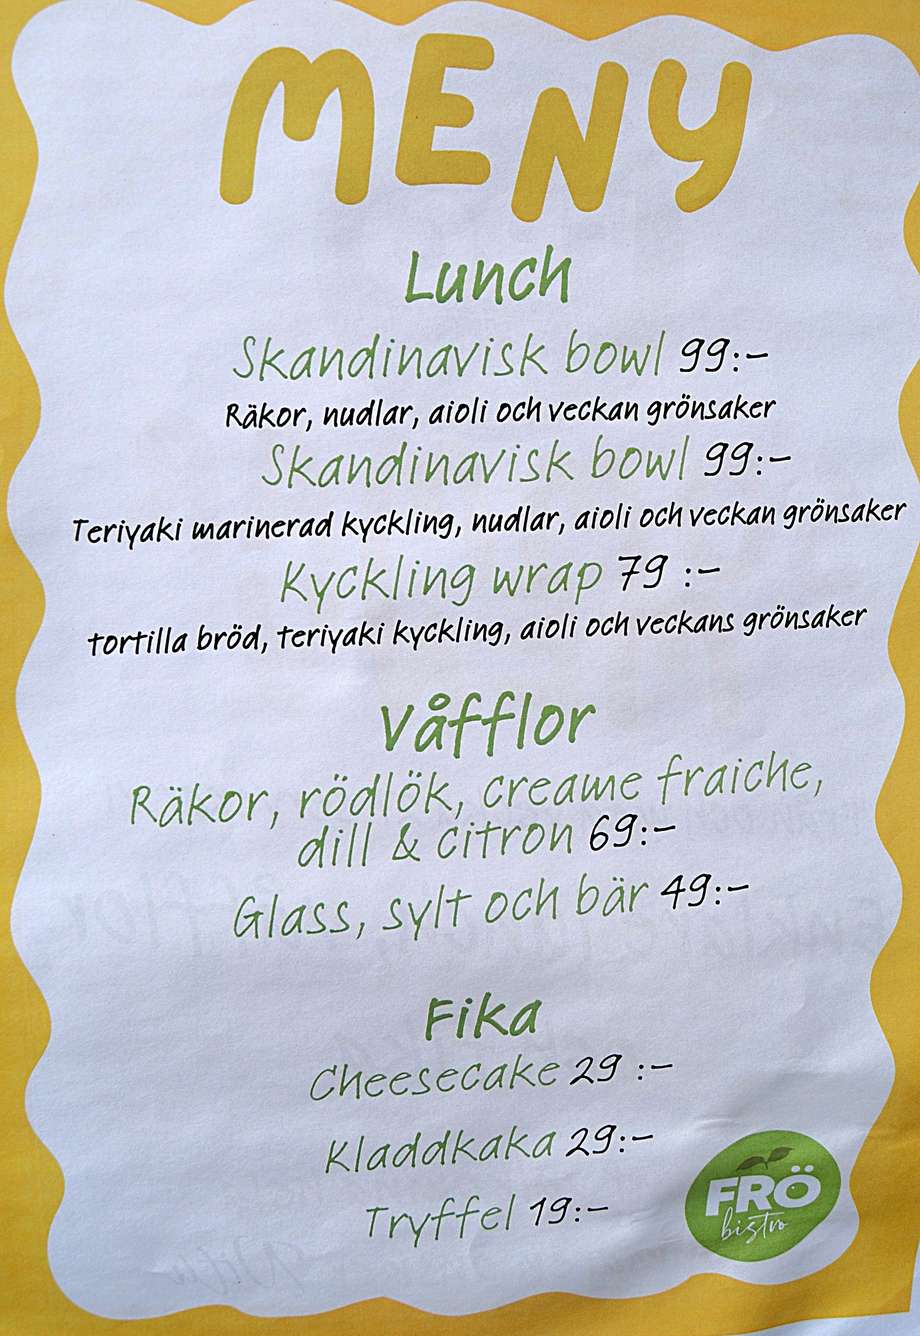 MENY
Lunch
Skandinavisk bowl 99:-
Räkor, nudlar, aioli och veckan grönsaker
Skandinavisk bowl 99:-
Teriyaki marinerad kyckling, nudlar, aioli och veckan grönsaker
Kyckling wrap 79 :-
tortilla bröd, teriyaki kyckling, aioli och veckans grönsaker
Våfflor
Räkor, rödlök, creame fraiche,
dill & citron 69:-
Glass, sylt och bär 49:-
Fika
Cheesecake 29 :-
Kladdkaka 29:-
Tryffel 19:-
FRÖ
bistro